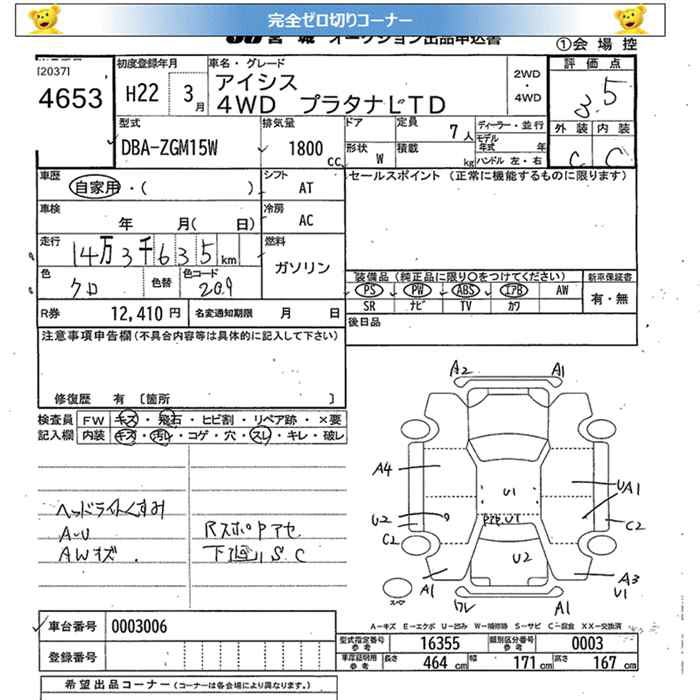 完全ゼロ切りコーナー
JU 宮城 オークション出品申込書
①会場控
[2037]
4653
初度登録年月
H22 3月
車名・グレード
アイシス
4WD プラタナLTD
2WD
・
4WD
評価点
3.5
外装 内装
C C
型式
DBA-ZGM15W
排気量
1800 cc
ドア
形状 W
定員 7人
積載 kg
ディーラー・並行
モデル年式 年
ハンドル 左・右
車歴
自家用・( )
シフト
AT
セールスポイント (正常に機能するものに限ります)
車検
年 月( 日)
冷房
AC
走行
14万3千635km
燃料
ガソリン
色
クロ
色替
色コード
209
装備品 (純正品に限り○をつけてください)
PS PW ABS エアB AW
SR ナビ TV カワ
新車保証書
有・無
R券 12,410円
名変通知期限 月 日
後日品
注意事項申告欄(不具合内容等は具体的に記入して下さい)
修復歴 有 [箇所 ]
検査員記入欄
FW キズ・飛石・ヒビ割・リペア跡・×要
内装 キズ・汚レ・コゲ・穴・スレ・キレ・破レ
ヘッドライトくすみ
A-U
AWキズ.
下廻りS.C
A2 A1
A4
U1
UA1
U2
C2
C2
U2
A1
ワレ
A1
A3
U1
スペア
A-キズ E-エクボ U-凹み W-補修跡 S-サビ C-腐食 XX-交換済
車台番号 0003006
登録番号
型式指定番号 参考 16355
類別区分番号 参考 0003
車庫証明用 参考 長さ 464 cm 幅 171 cm 高さ 167 cm
希望出品コーナー (コーナーは各会場により異なります。)